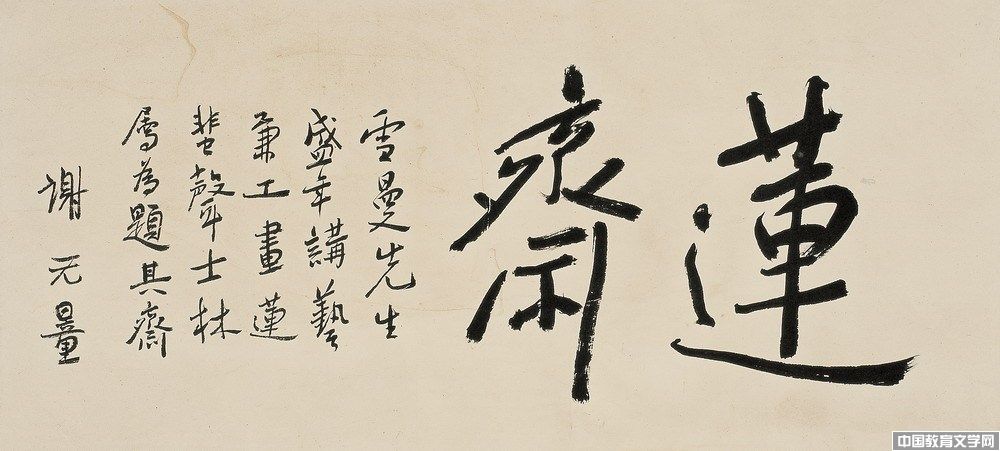 蓮齋
雪曼先生
盛年講藝
兼工畫蓮
蜚聲士林
屬為題其齋
謝无量
中国教育文学网